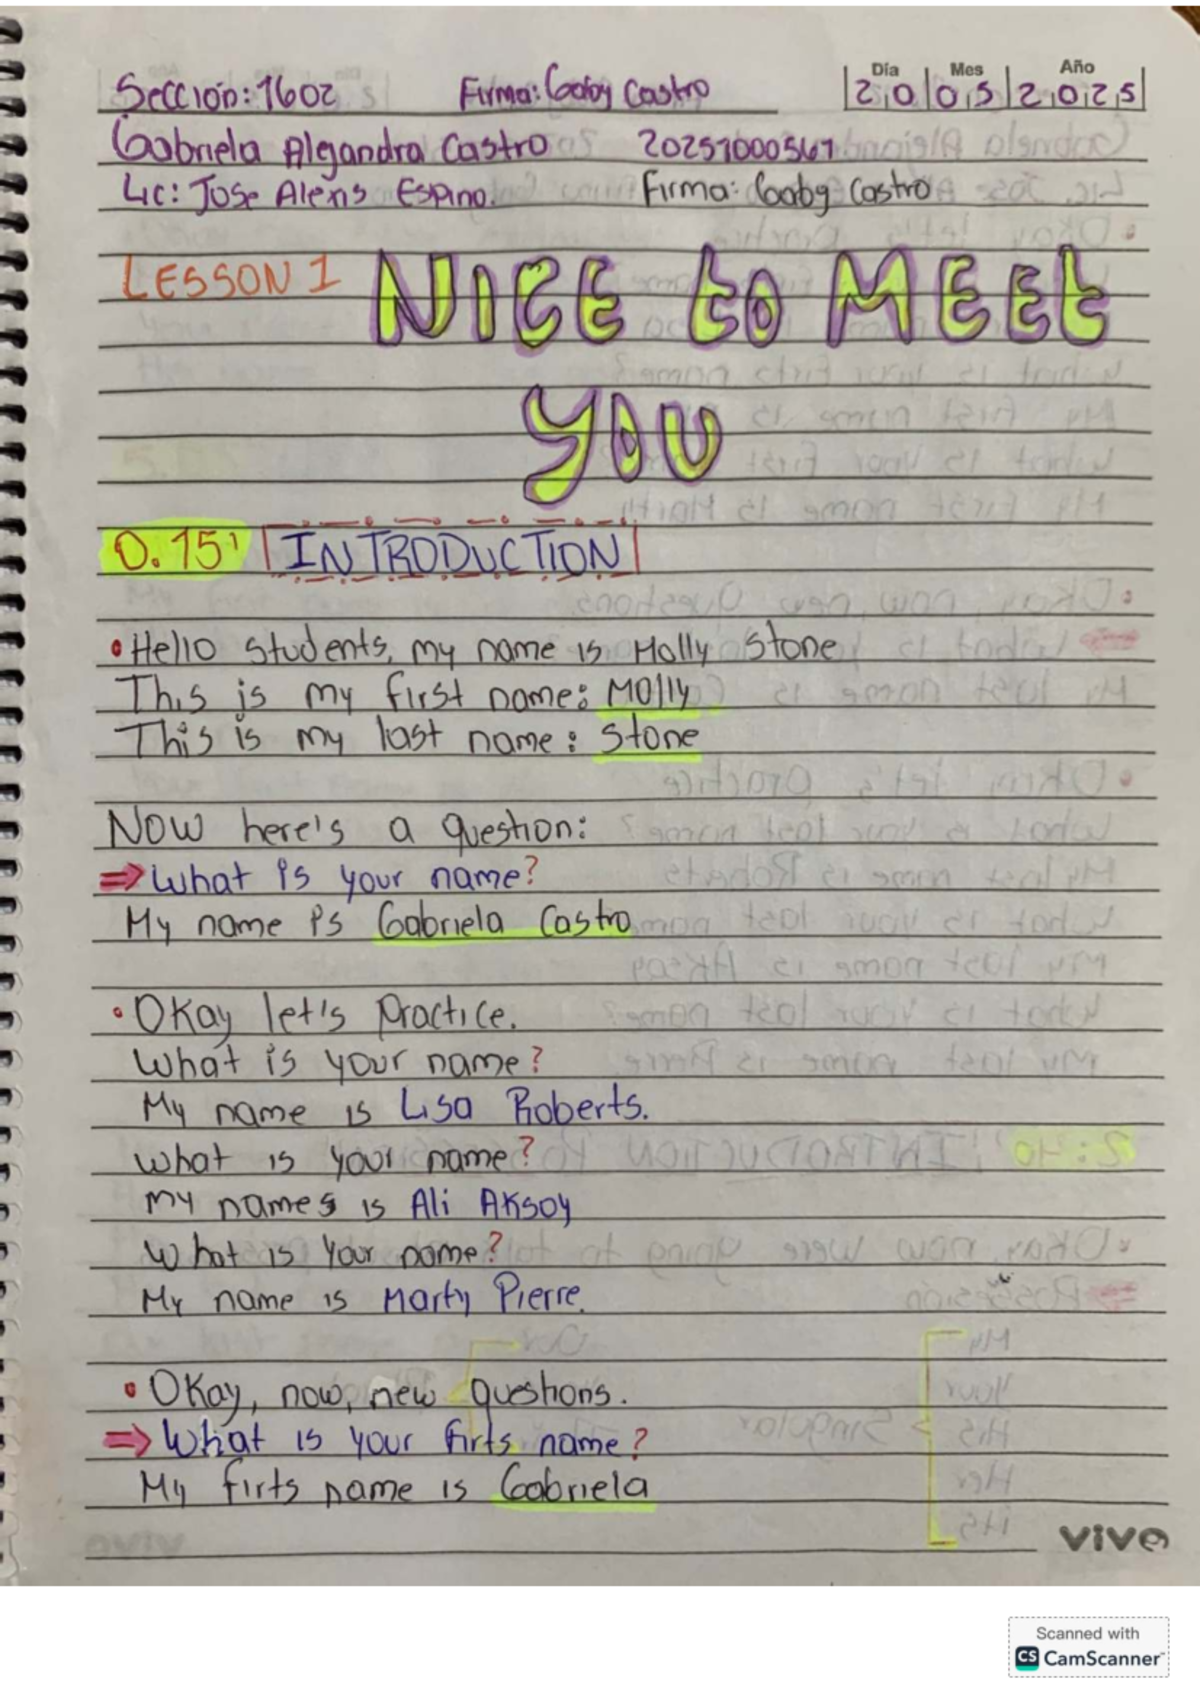 Sección: 1602 Firma: Gaby Castro Día Mes Año 20 05 2025
Gabriela Alejandra Castro 20251000561
Lic: Jose Alexis Espino. Firma: Gaby Castro
LESSON 1 NICE to MEEt
YOU
0.15' INTRODUCTION
• Hello students, my name is Molly Stone
This is my first name: Molly
This is my last name: Stone
Now here's a question:
⇒ What is your name?
My name is Gabriela Castro
• Okay let's practice.
What is your name?
My name is Lisa Roberts.
What is your name?
My names is Ali Aksoy
What is your name?
My name is Marty Pierre.
• Okay, now, new questions.
⇒ What is your firts name?
My firts name is Gabriela
vive
Scanned with
CS CamScanner